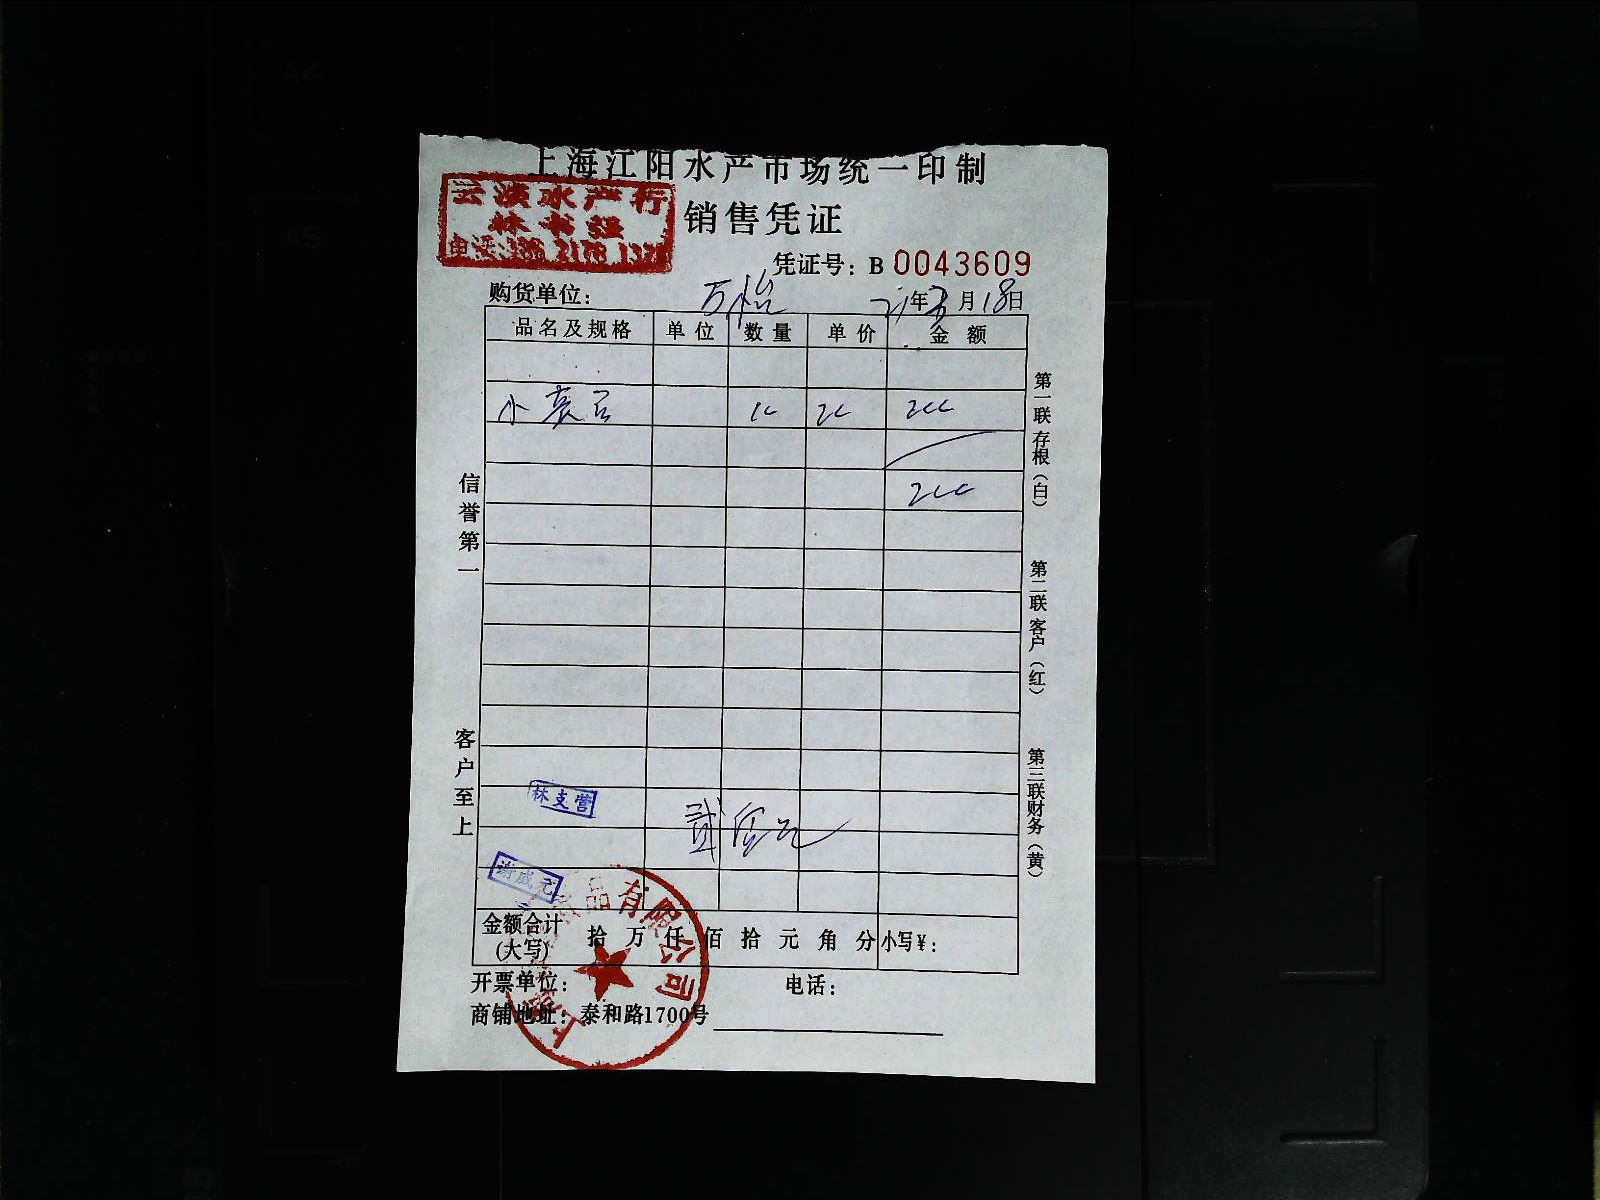 上海江阳水产市场统一印制
水产行
销售凭证
凭证号：B 0043609
购货单位：万怡 21年 月18日
品名及规格 单位 数量 单价 金额
小 10 20 200
200
信誉第一
客户至上
第一联 存根（白）
第二联 客户（红）
第三联 财务（黄）
林支营
贰佰元
谢成元
品有限公司
金额合计(大写) 拾 万 仟 佰 拾 元 角 分 小写￥：
开票单位： 电话：
商铺地址：泰和路1700号